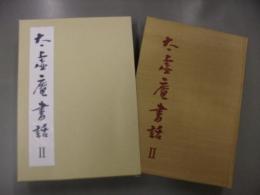 太虚庵書話
II
太虚庵書話
II